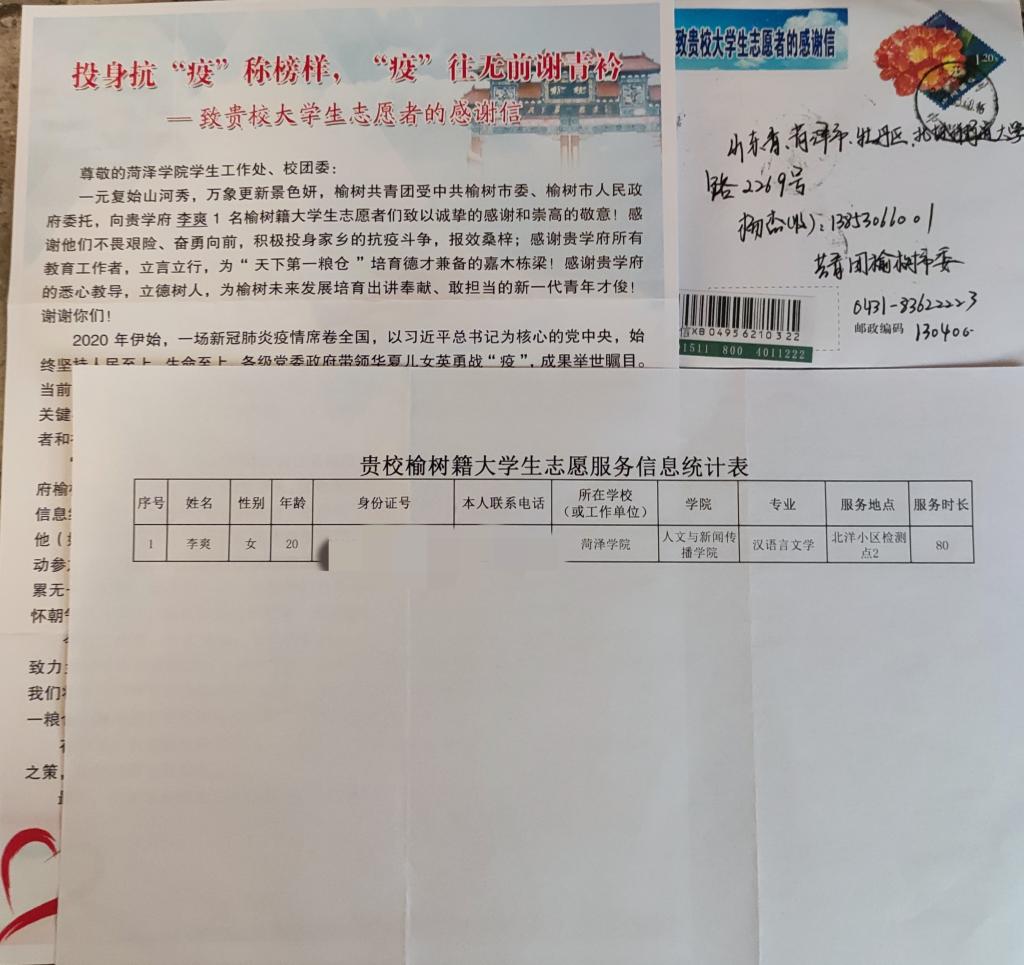 投身抗“疫”称榜样，“疫”往无前谢青衿
—致贵校大学生志愿者的感谢信
尊敬的菏泽学院学生工作处、校团委：
一元复始山河秀，万象更新景色妍，榆树共青团受中共榆树市委、榆树市人民政
府委托，向贵学府 李爽 1 名榆树籍大学生志愿者们致以诚挚的感谢和崇高的敬意！感
谢他们不畏艰险、奋勇向前，积极投身家乡的抗疫斗争，报效桑梓；感谢贵学府所有
教育工作者，立言立行，为“天下第一粮仓”培育德才兼备的嘉木栋梁！感谢贵学府
的悉心教导，立德树人，为榆树未来发展培育出讲奉献、敢担当的新一代青年才俊！
谢谢你们！
2020 年伊始，一场新冠肺炎疫情席卷全国，以习近平总书记为核心的党中央，始
终坚持人民至上、生命至上，各级党委政府带领华夏儿女英勇战“疫”，成果举世瞩目。
当前
关键
者和
府榆
信息
他（
动参
累无
怀朝
致力
我们
一粮
之策，
致贵校大学生志愿者的感谢信
1.20
山东省、菏泽市、牡丹区、大学
路2269号
杨杰(收)：13853066001
共青团榆树市委
0431-83622223
邮政编码 130400
信XB04956210322
1511 800 4011222
贵校榆树籍大学生志愿服务信息统计表
序号 姓名 性别 年龄 身份证号 本人联系电话 所在学校（或工作单位） 学院 专业 服务地点 服务时长
1 李爽 女 20 菏泽学院 人文与新闻传播学院 汉语言文学 北洋小区检测点2 80